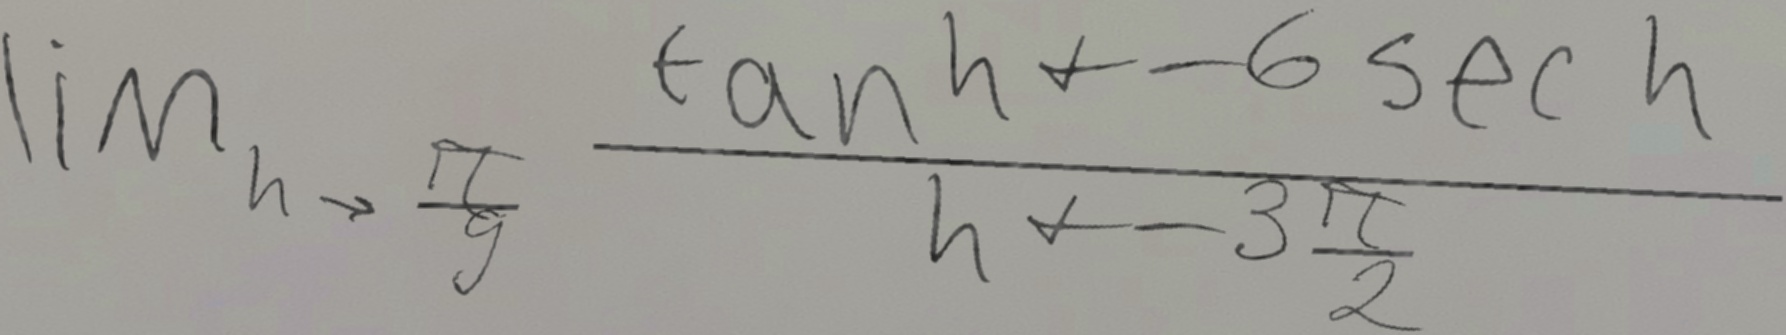 \lim_{h \to \frac{\pi}{9}} \frac{\tan h + -6 \sec h}{h + -3 \frac{\pi}{2}}